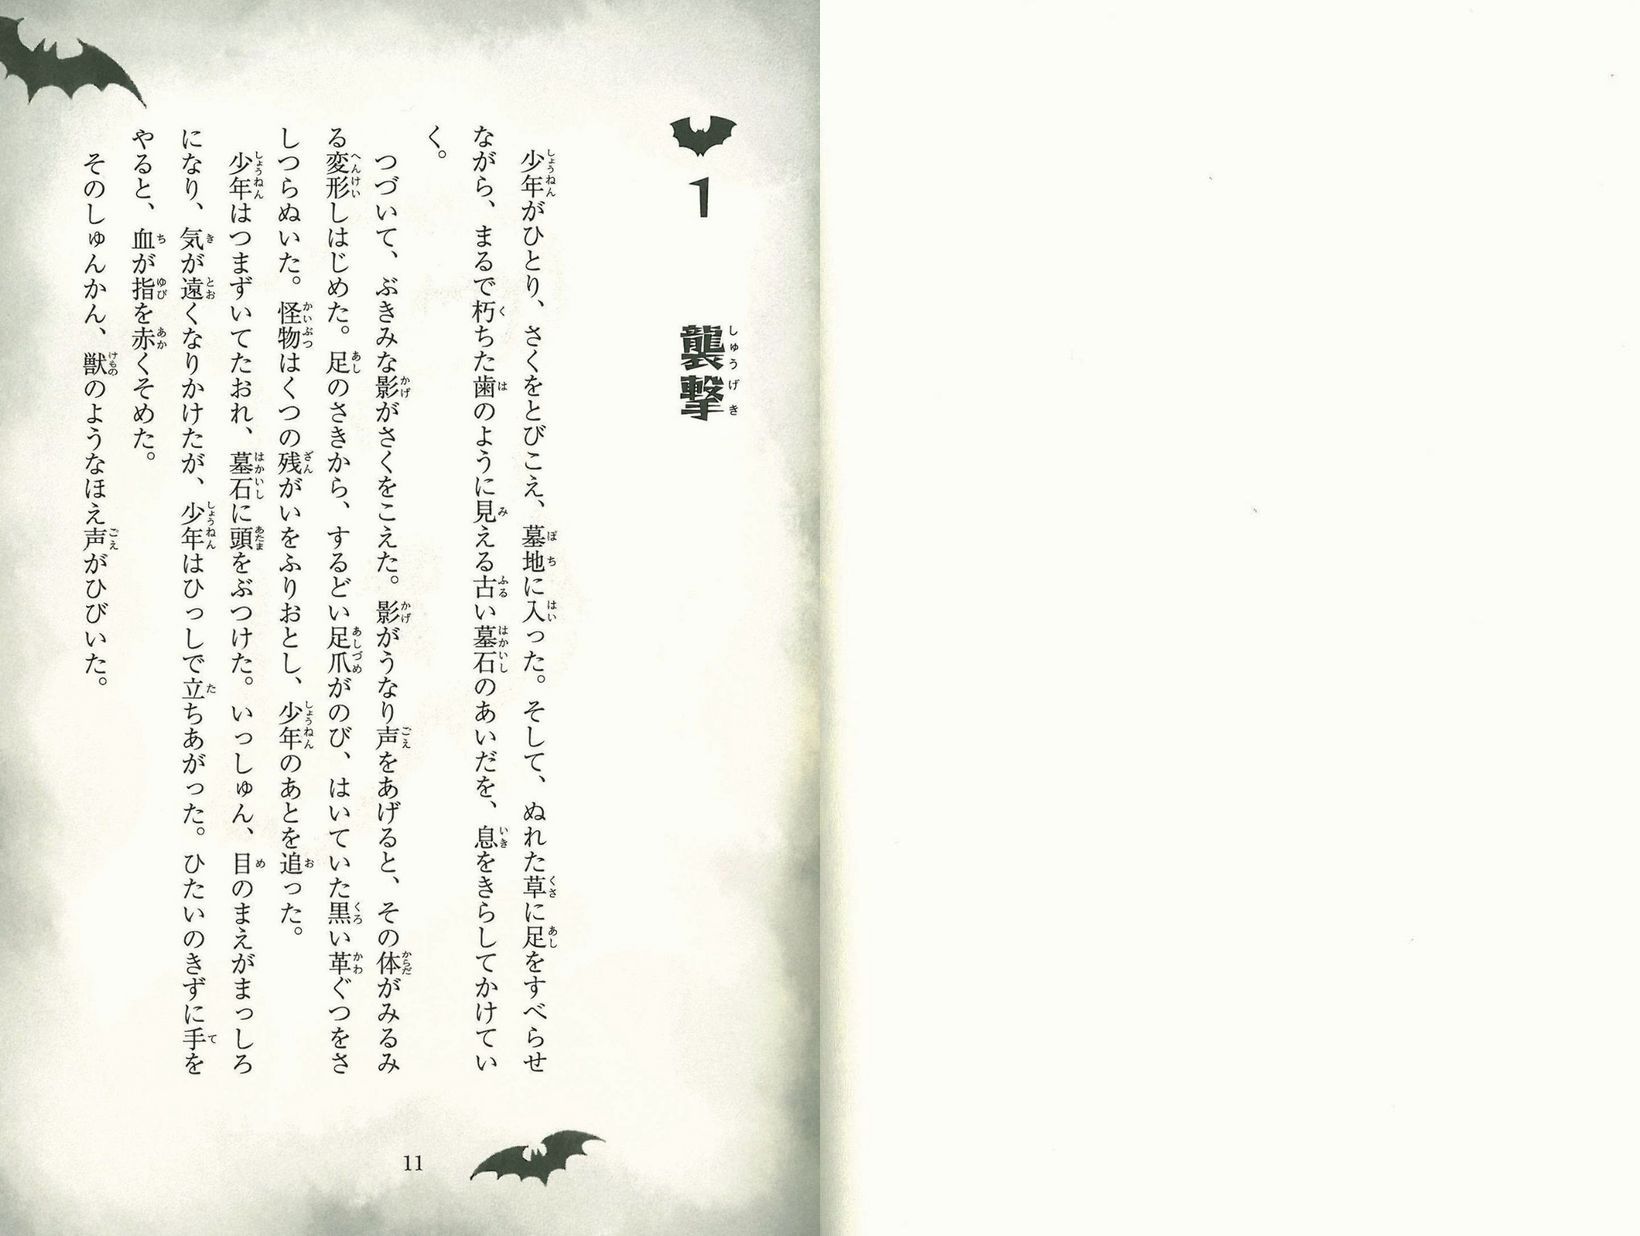 1 襲撃
少年がひとり、さくをとびこえ、墓地に入った。そして、ぬれた草に足をすべらせ
ながら、まるで朽ちた歯のように見える古い墓石のあいだを、息をきらしてかけてい
く。
つづいて、ぶきみな影がさくをこえた。影がうなり声をあげると、その体がみるみ
る変形しはじめた。足のさきから、するどい足爪がのび、はいていた黒い革ぐつをさ
しつらぬいた。怪物はくつの残がいをふりおとし、少年のあとを追った。
少年はつまずいてたおれ、墓石に頭をぶつけた。いっしゅん、目のまえがまっしろ
になり、気が遠くなりかけたが、少年はひっしで立ちあがった。ひたいのきずに手を
やると、血が指を赤くそめた。
そのしゅんかん、獣のようなほえ声がひびいた。
11